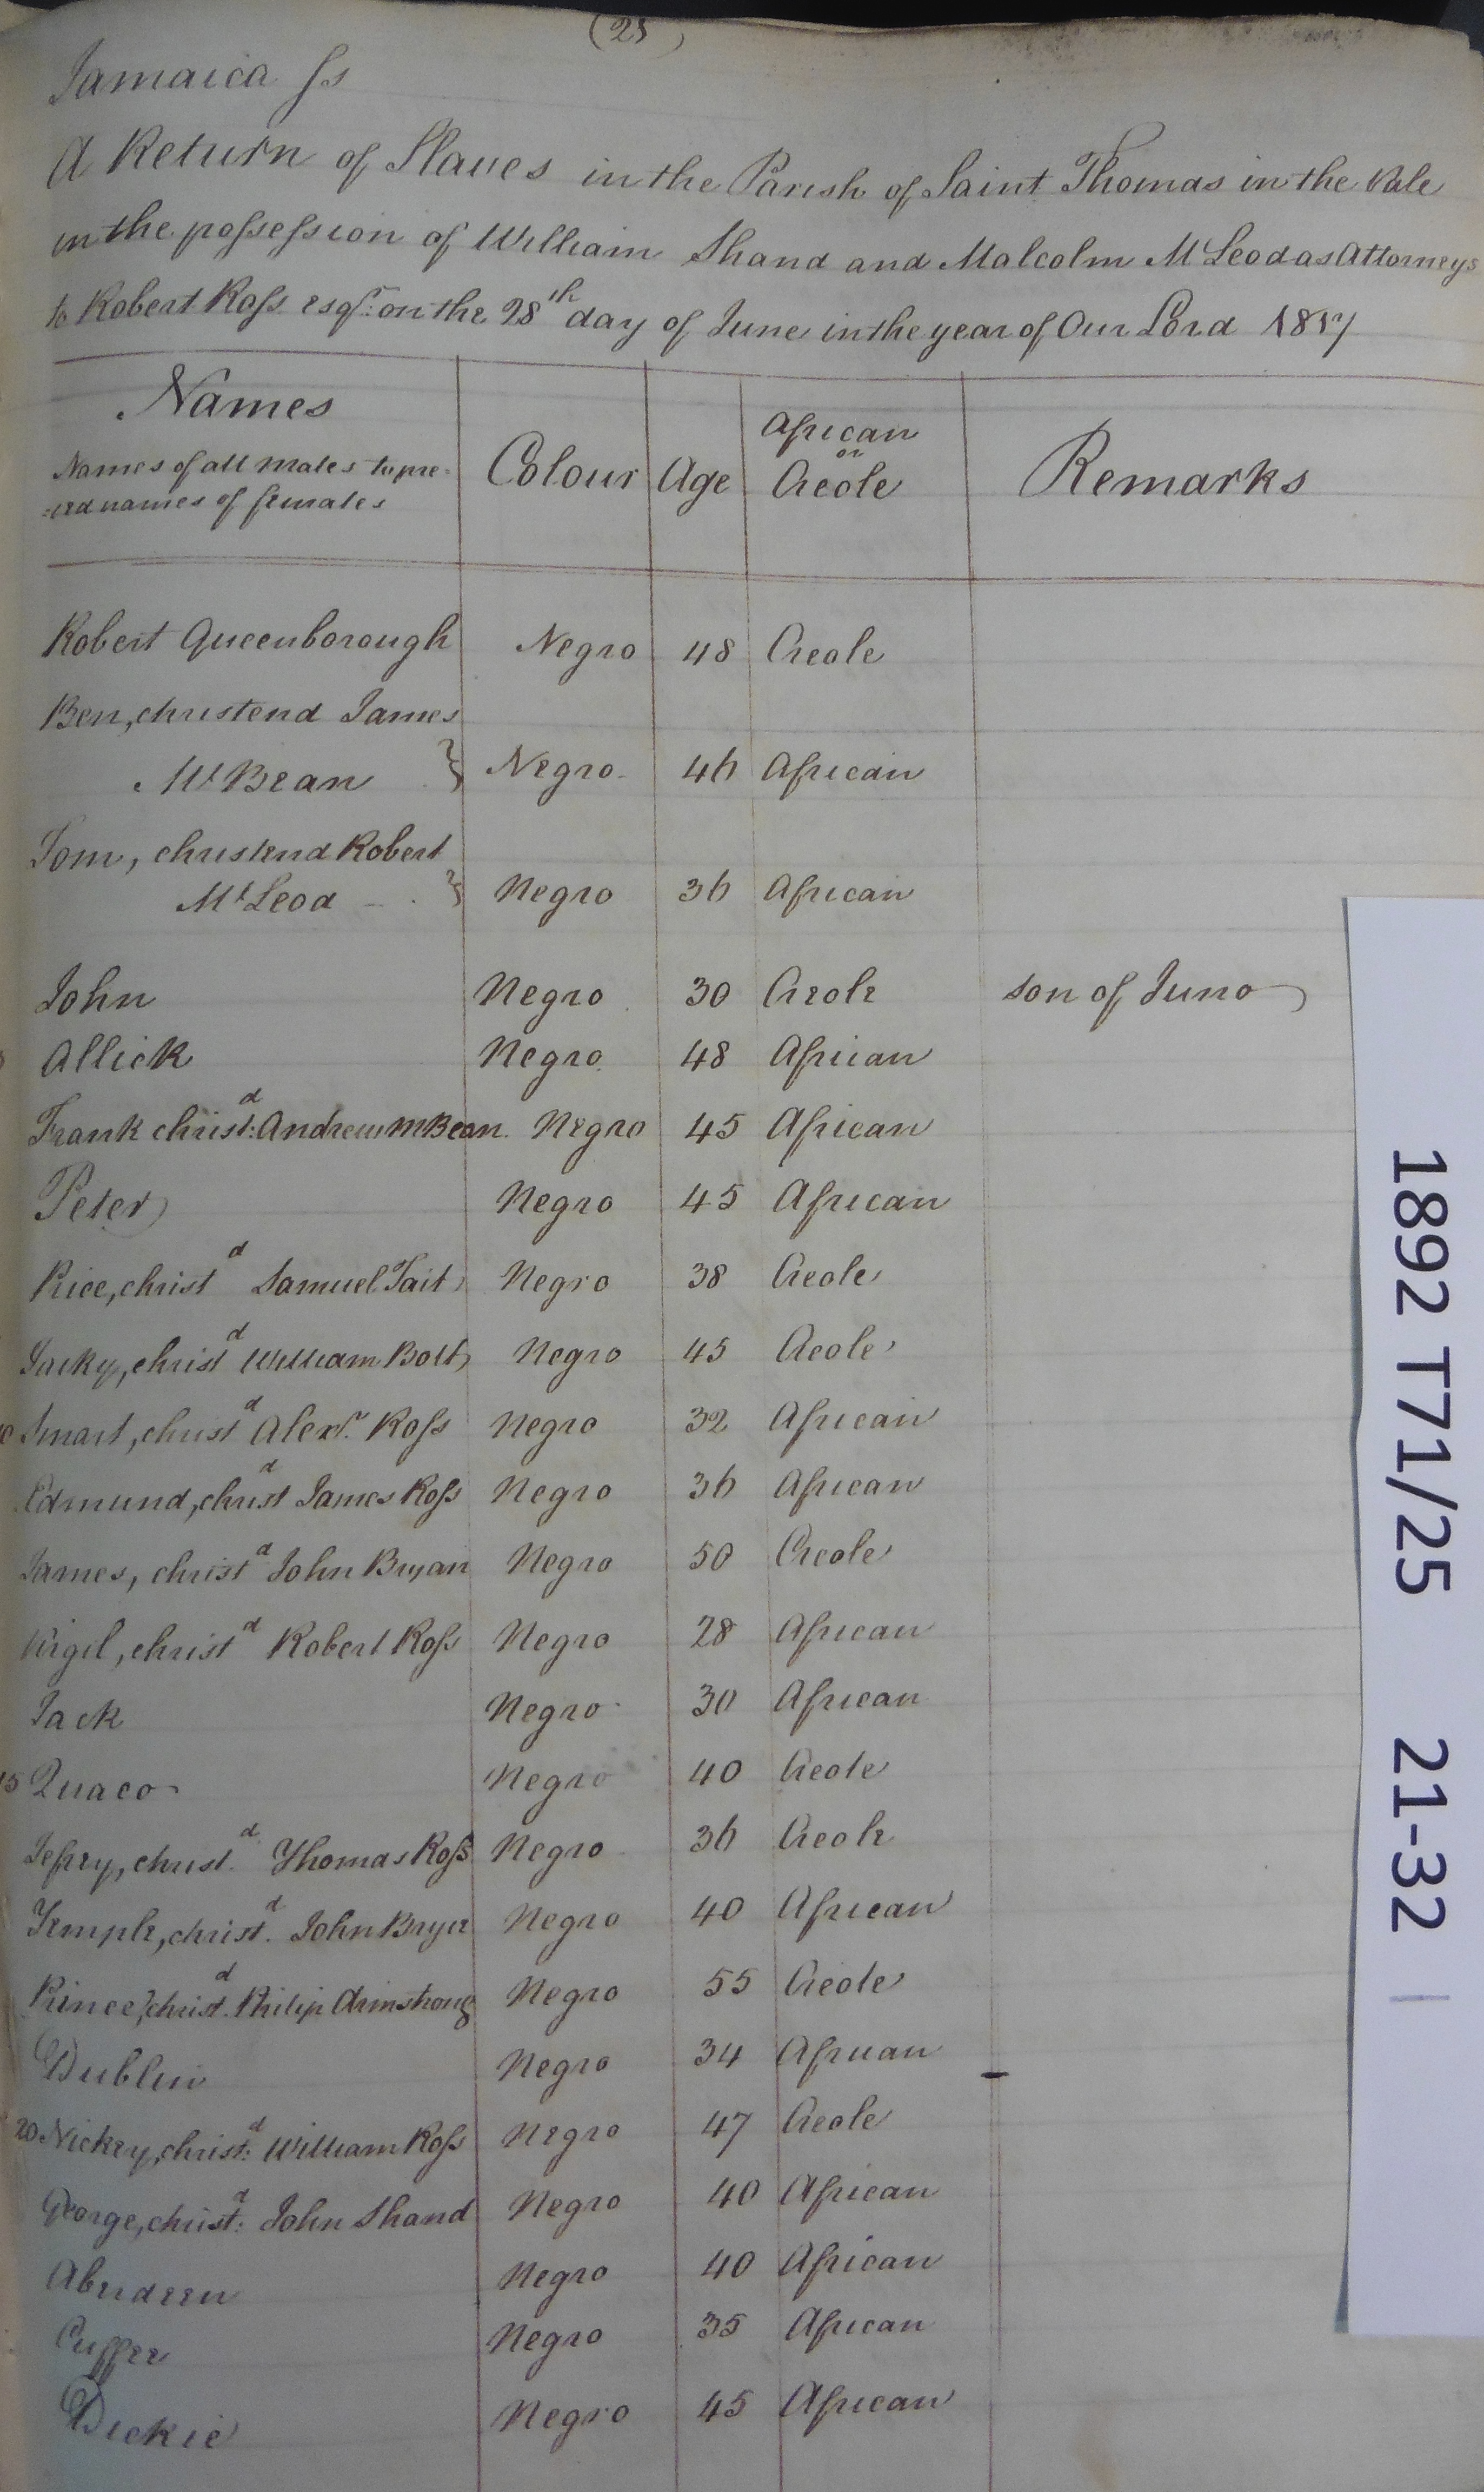 (25)
Jamaica Ss
A Return of Slaves in the Parish of Saint Thomas in the Vale
in the possession of William Shand and Malcolm McLeod as Attorneys
to Robert Ross esqr: on the 28th day of June in the year of Our Lord 1817
Names
Names of all males to pre=
=ceed names of females
Colour Age African or Creole Remarks
Robert Queenborough Negro 48 Creole
Ben, christend James
McBean } Negro 46 African
Tom, christend Robert
McLeod } Negro 36 African
John Negro 30 Creole son of Juno
Allick Negro 48 African
Frank christd: Andrew McBean Negro 45 African
Peter Negro 45 African
Price, christd Samuel Tait Negro 38 Creole
Jacky, christd William Bolt Negro 45 Creole
10 Smart, christd Alexr. Ross Negro 32 African
Edmund, christd James Ross Negro 36 African
James, christd John Bryan Negro 50 Creole
Virgil, christd Robert Ross Negro 28 African
Jack Negro 30 African
15 Quaco Negro 40 Creole
Jeffrey, christd. Thomas Ross Negro 36 Creole
Temple, christd. John Bryce Negro 40 African
Prince, christd. Philip Armstrong Negro 55 Creole
Dublin Negro 34 African
20 Nickey, christd: William Ross Negro 47 Creole
George, christd: John Shand Negro 40 African
Aberdeen Negro 40 African
Cuffee Negro 35 African
Dickie Negro 45 African
1892 T71/25 21-32